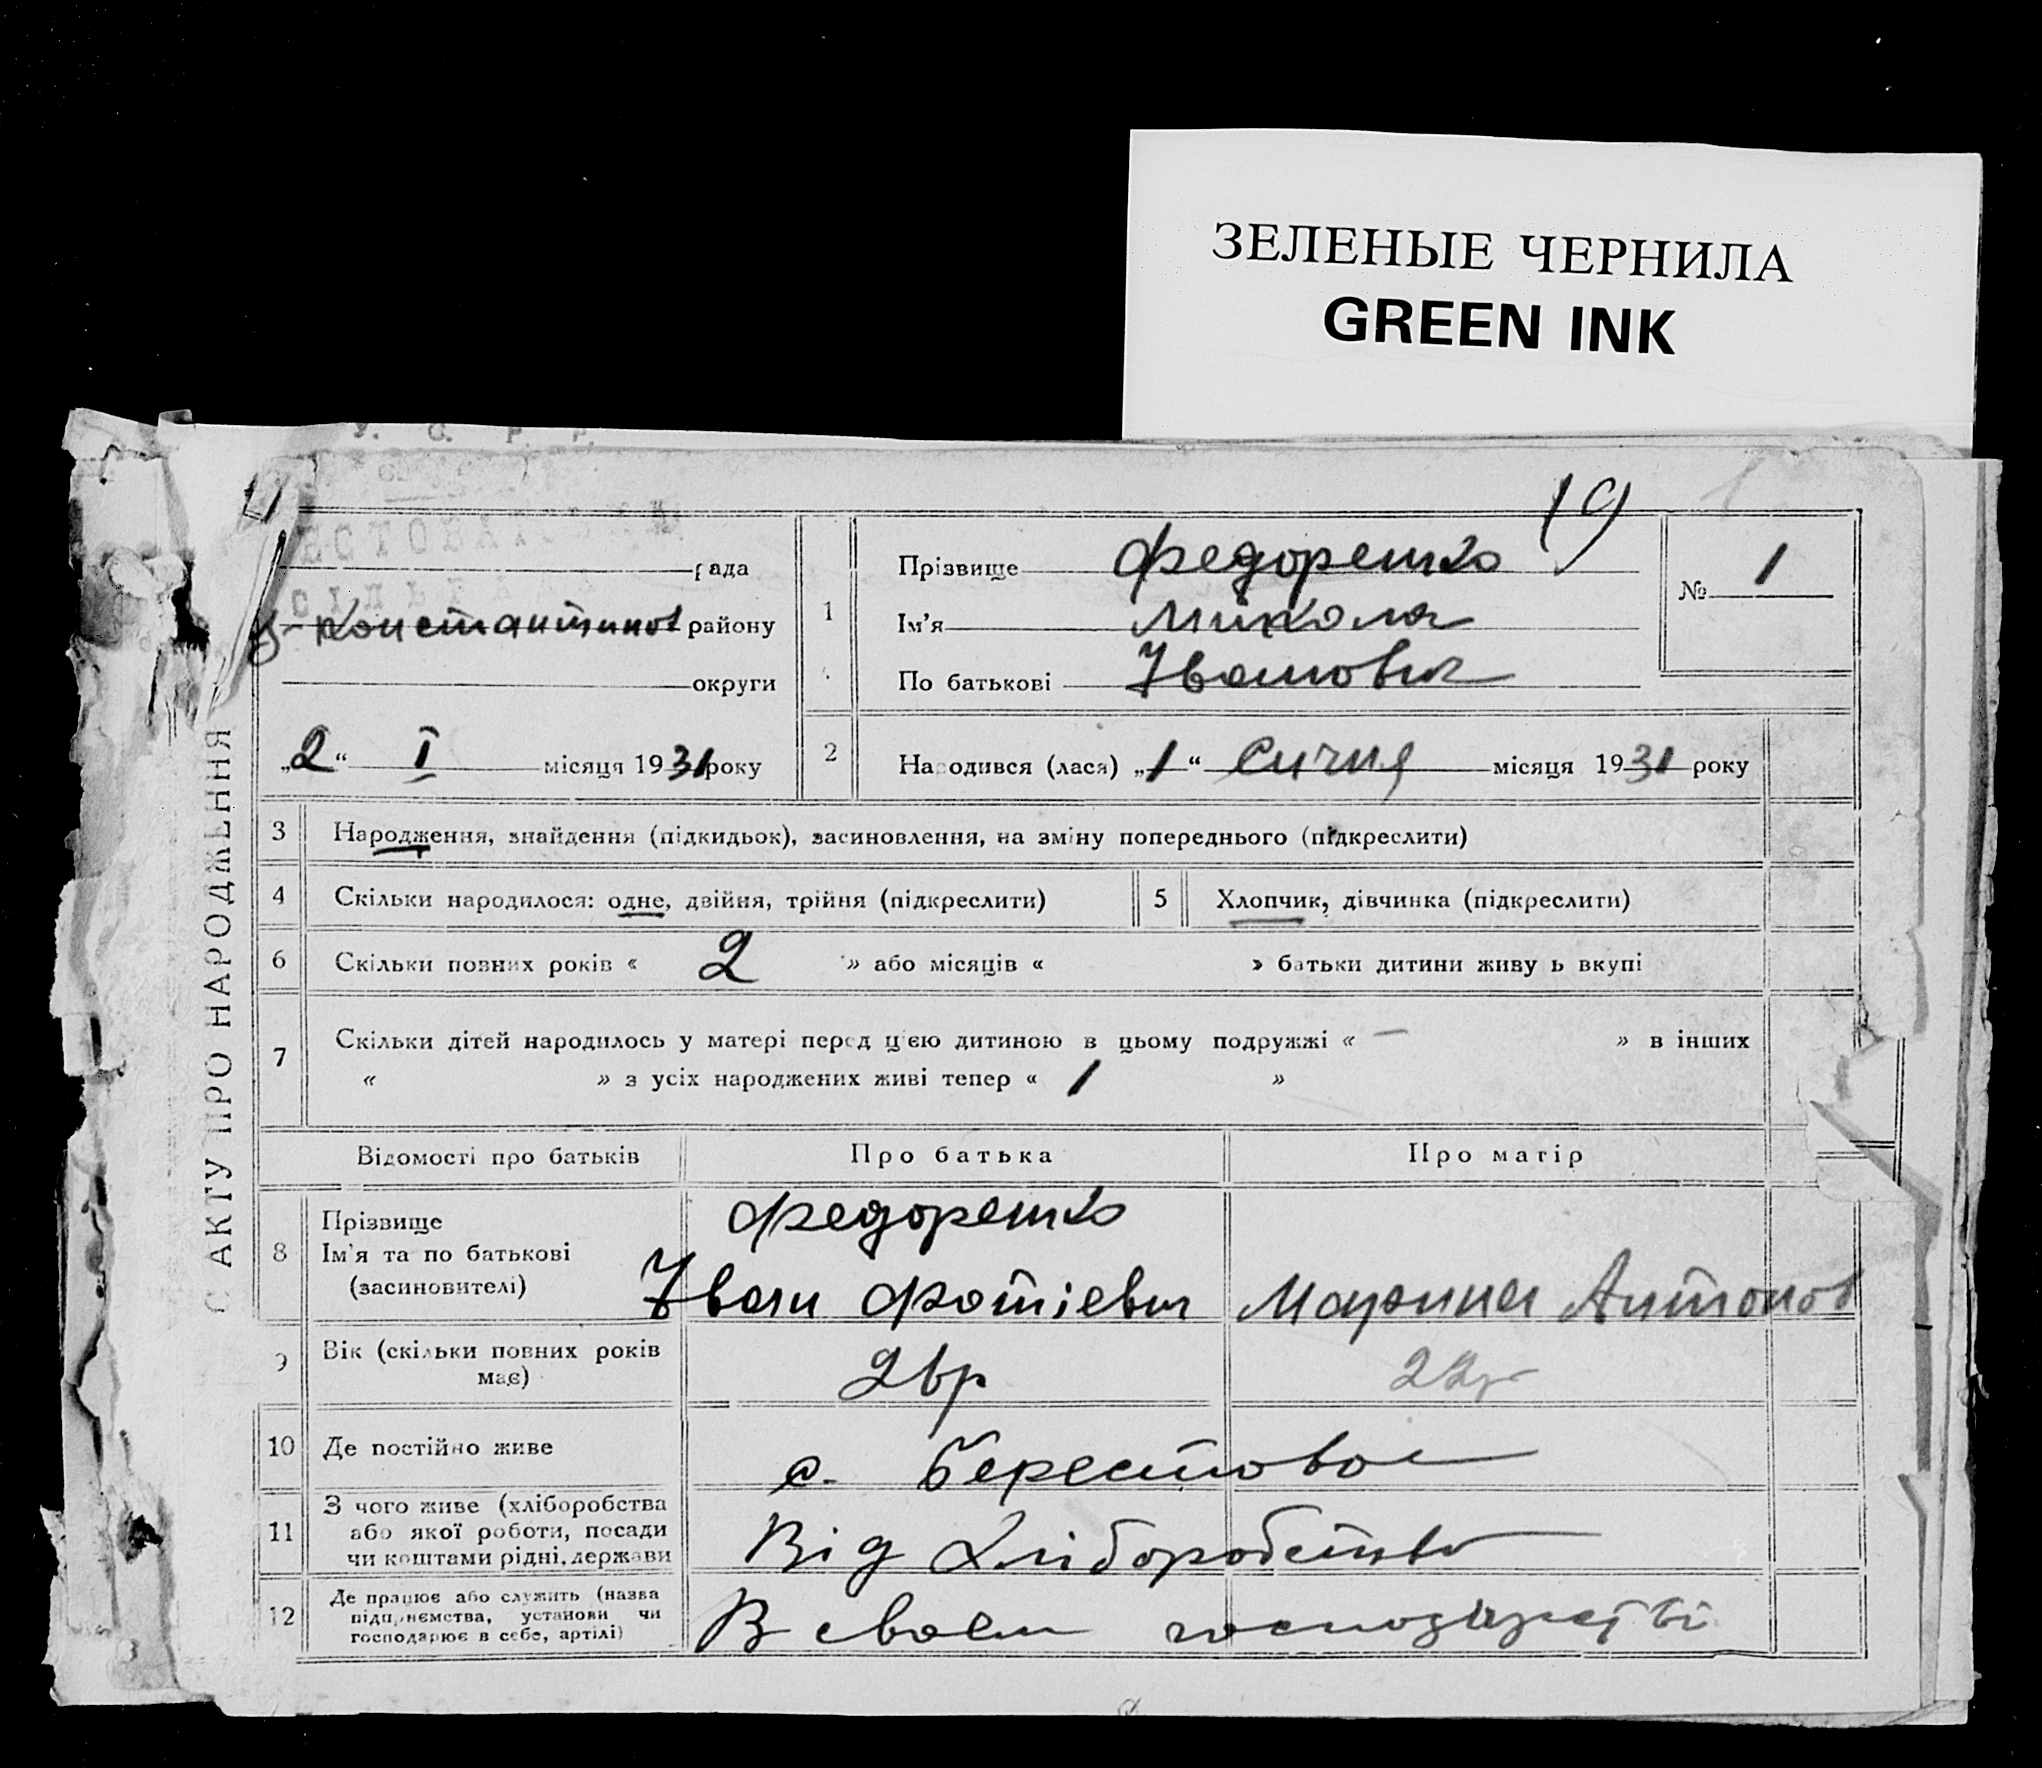 ЗЕЛЕНЫЕ ЧЕРНИЛА
GREEN INK
У. С. Р. Р.
19
рада
Константинов району
округи
„2“ I місяця 1931 року
АКТУ ПРО НАРОДЖЕННЯ
1 Прізвище Федоренко
Ім'я Микола
По батькові Іванович
№ 1
2 Народився (лася) „1“ Січня місяця 1931 року
3 Народження, знайдення (підкидьок), засиновлення, на зміну попереднього (підкреслити)
4 Скільки народилося: одне, двійня, трійня (підкреслити)
5 Хлопчик, дівчинка (підкреслити)
6 Скільки повних років « 2 » або місяців « » батьки дитини живуть вкупі
7 Скільки дітей народилось у матері перед цією дитиною в цьому подружжі « — » в інших
« » з усіх народжених живі тепер « 1 »
Відомості про батьків Про батька Про матір
8 Прізвище Федоренко
Ім'я та по батькові
(засиновителі) Іван Фотієвич Марина Антонов
9 Вік (скільки повних років
має) 2вр 22р
10 Де постійно живе с. Берестовое
11 З чого живе (хліборобства
або якої роботи, посади
чи коштами рідні, держави Від хліборобства
12 Де працює або служить (назва
підприємства, установи чи
господарює в себе, артілі) В своем господарстві